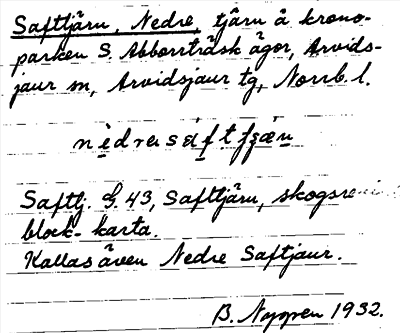 Saftjärn, Nedre, tjärn å krono-
parken S. Abborrträsk ägor, Arvids-
jaur sn, Arvidsjaur tg, Norrb. l.
Saftj. G. 43, Saftjärn, skogsrevi
block-karta.
Kallas även Nedre Saftjaur.
B. Nyman 1932.